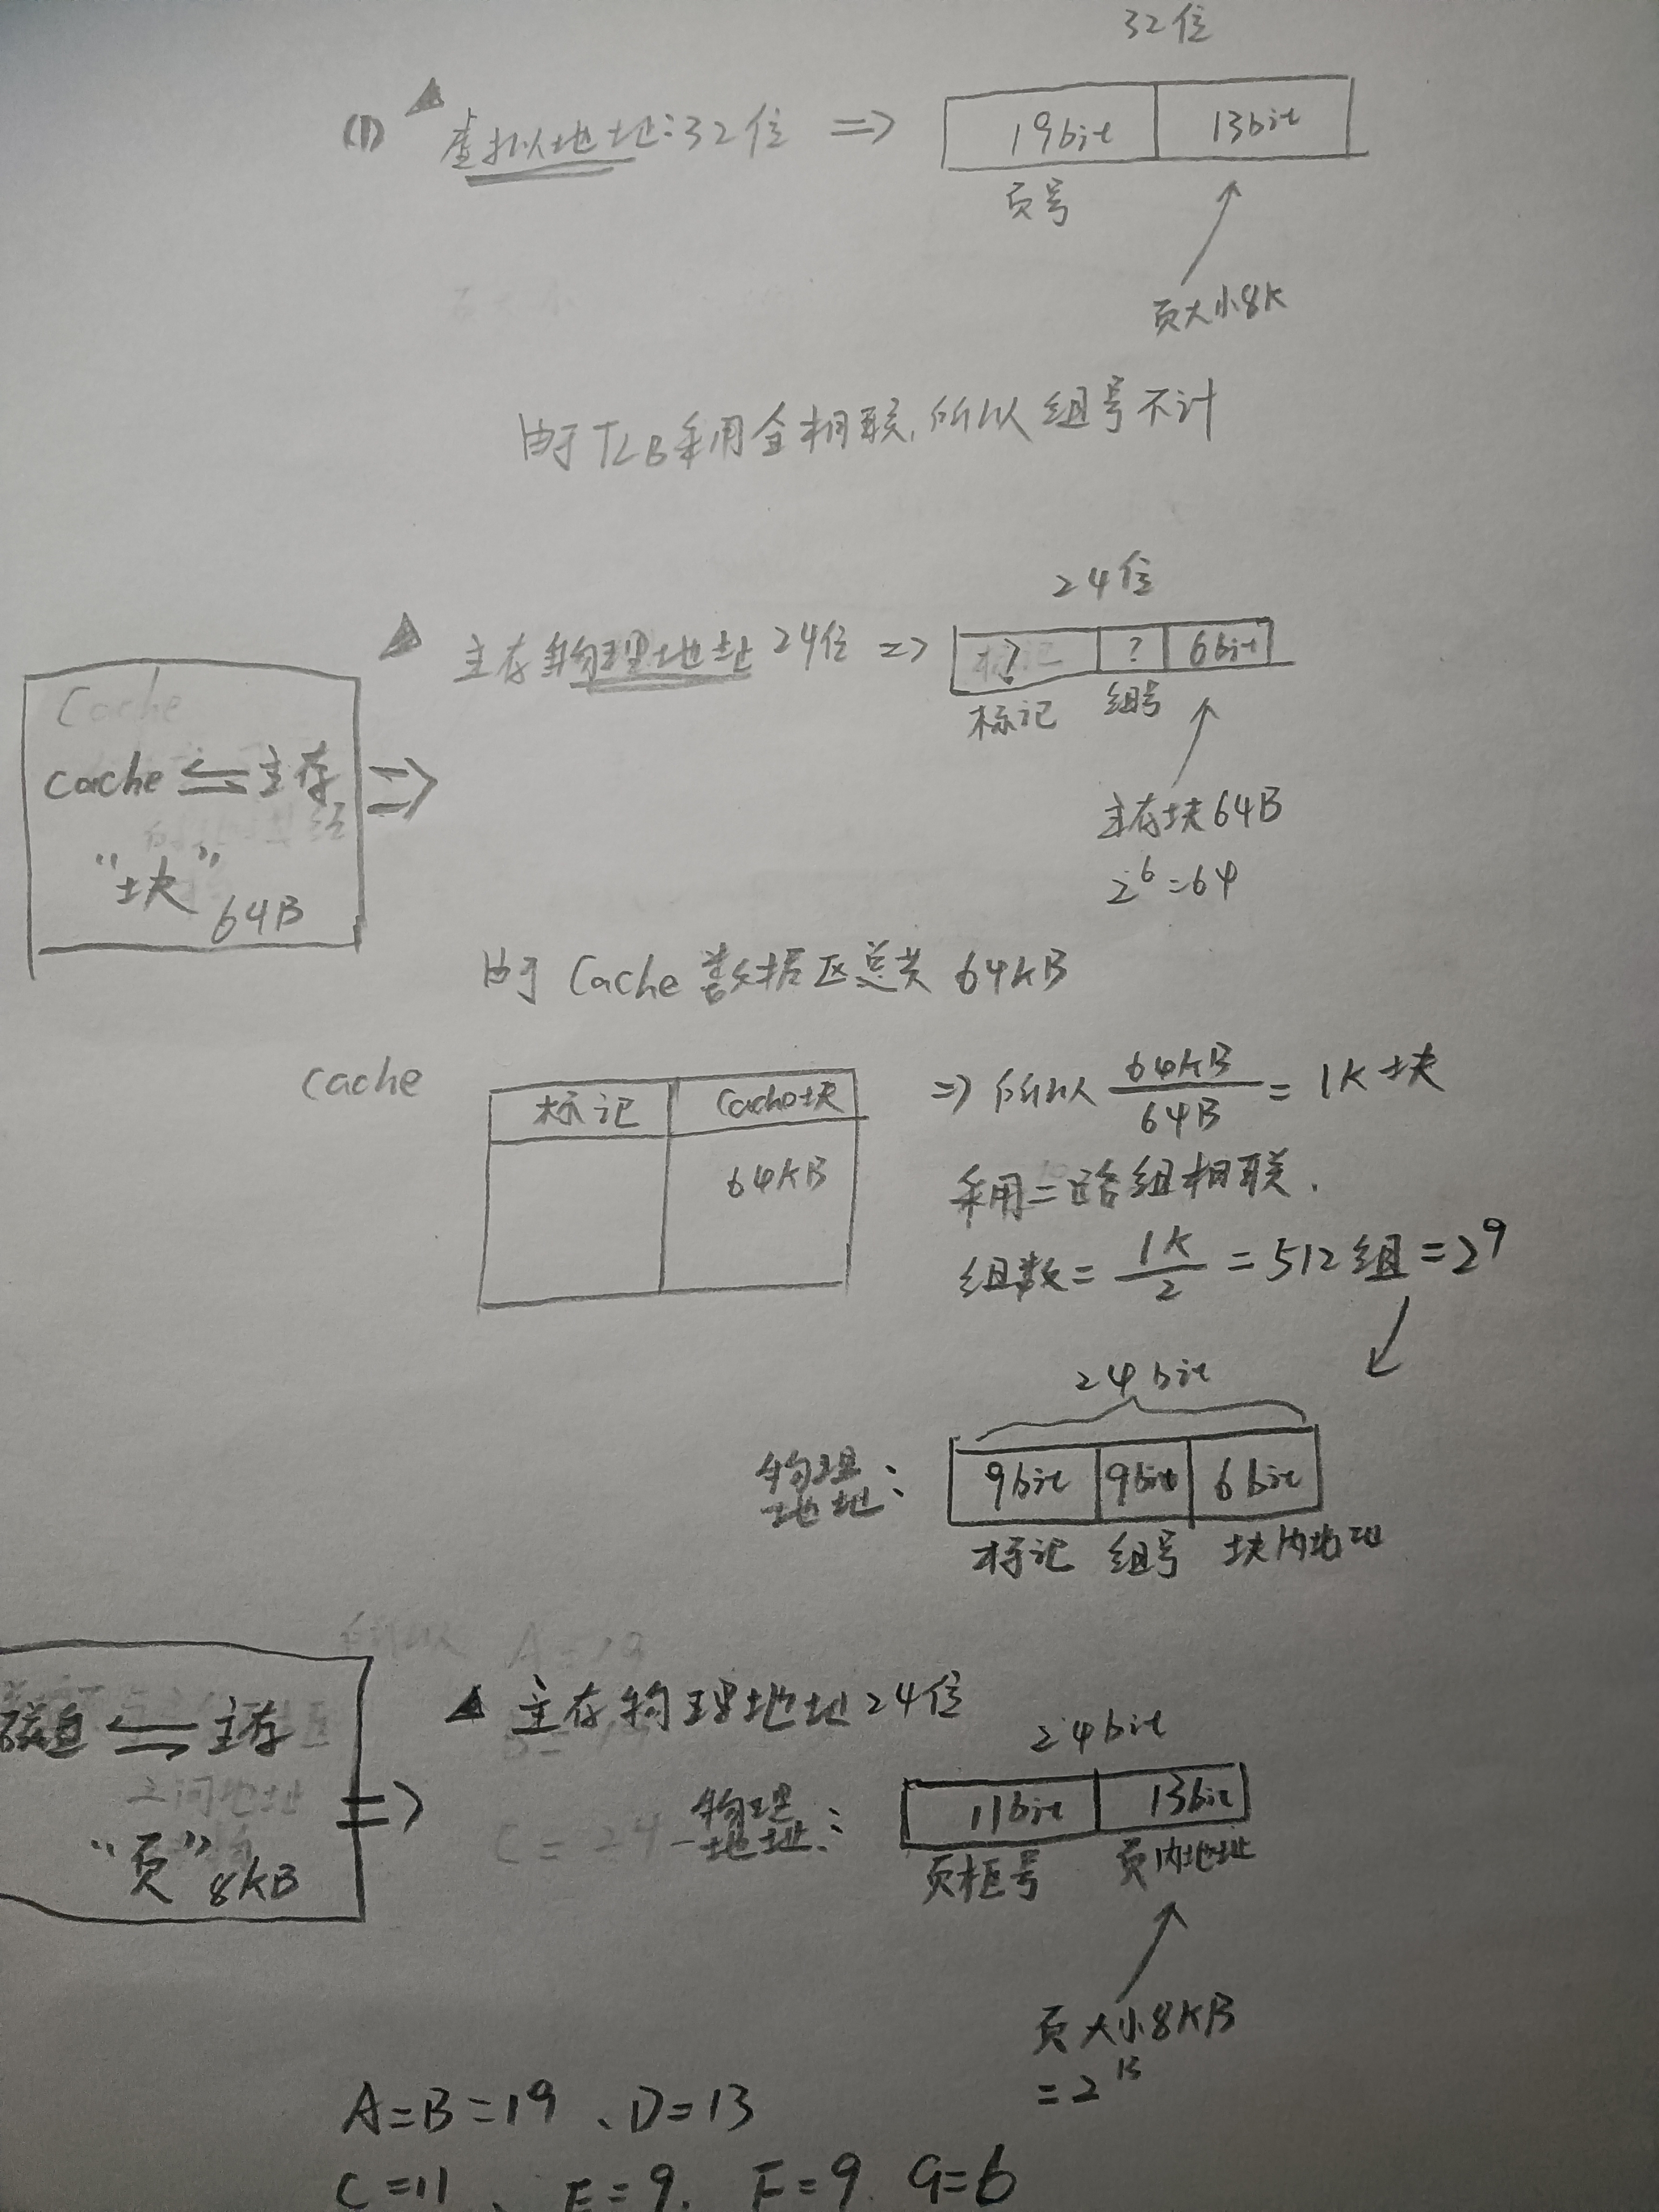 32位
(1) 虚拟地址:32位 => 19bit 13bit
页号
页大小8K
由于TLB采用全相联,所以组号不计
24位
主存物理地址24位 => ? ? 6bit
标记 组号
Cache
Cache ⇌ 主存 =>
"块" 64B
主存块64B
2^6=64
由于Cache数据区总共64KB
Cache
标记 Cache块
64KB
=> 所以 64KB/64B = 1K块
采用二路组相联.
组数= 1K/2 = 512组=2^9
24bit
物理地址: 9bit 9bit 6bit
标记 组号 块内地址
所以 A=19
磁盘 ⇌ 主存 =>
"页" 8KB
主存物理地址24位
24bit
C=24-
物理地址: 11bit 13bit
页框号 页内地址
页大小8KB
=2^13
A=B=19、D=13
C=11、E=9. F=9. G=6